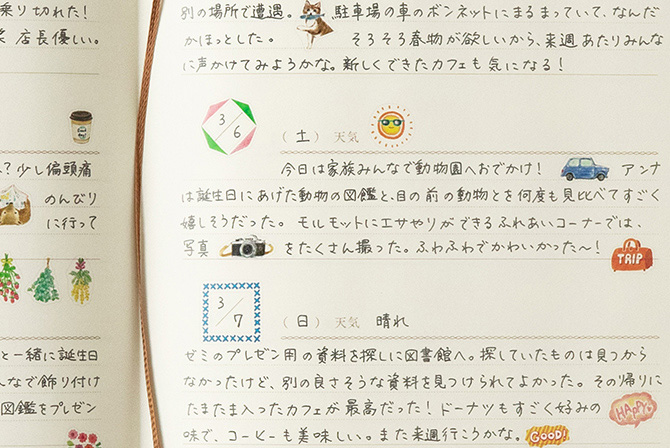 乗り切れた！
店長優しい。
？少し偏頭痛
のんびり
に行って
と一緒に誕生日
んなで飾り付け
図鑑をプレゼン
別の場所で遭遇。駐車場の車のボンネットにまるまっていて、なんだ
かほっとした。そろそろ春物が欲しいから、来週あたりみんな
に声かけてみようかな。新しくできたカフェも気になる！
3/6（土）天気
今日は家族みんなで動物園へおでかけ！アンナ
は誕生日にあげた動物の図鑑と、目の前の動物とを何度も見比べてすごく
嬉しそうだった。モルモットにエサやりができるふれあいコーナーでは、
写真をたくさん撮った。ふわふわでかわいかった〜！
TRIP
3/7（日）天気 晴れ
ゼミのプレゼン用の資料を探しに図書館へ。探していたものは見つから
なかったけど、別の良さそうな資料を見つけられてよかった。その帰りに
たまたま入ったカフェが最高だった！ドーナツもすごく好みの
HAPPY
味で、コーヒーも美味しい。また来週行こうかな。GOOD!